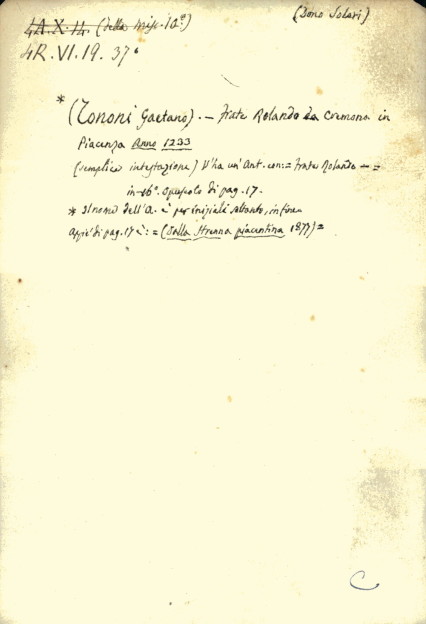 4A.X.14. (della misc. 10ª) (Dono Solari)
4R.VI.19.37°
* (Tononi Gaetano). — Frate Rolando da Cremona in
Piacenza Anno 1233
(semplice intestazione) V'ha un'Ant. con: = Frate Rolando — =
in-16°. opuscolo di pag. 17.
* Il nome dell'A. è per iniziali soltanto, in fine.
Appiè di pag. 17 è: = (Dalla Strenna piacentina 1877) =
C